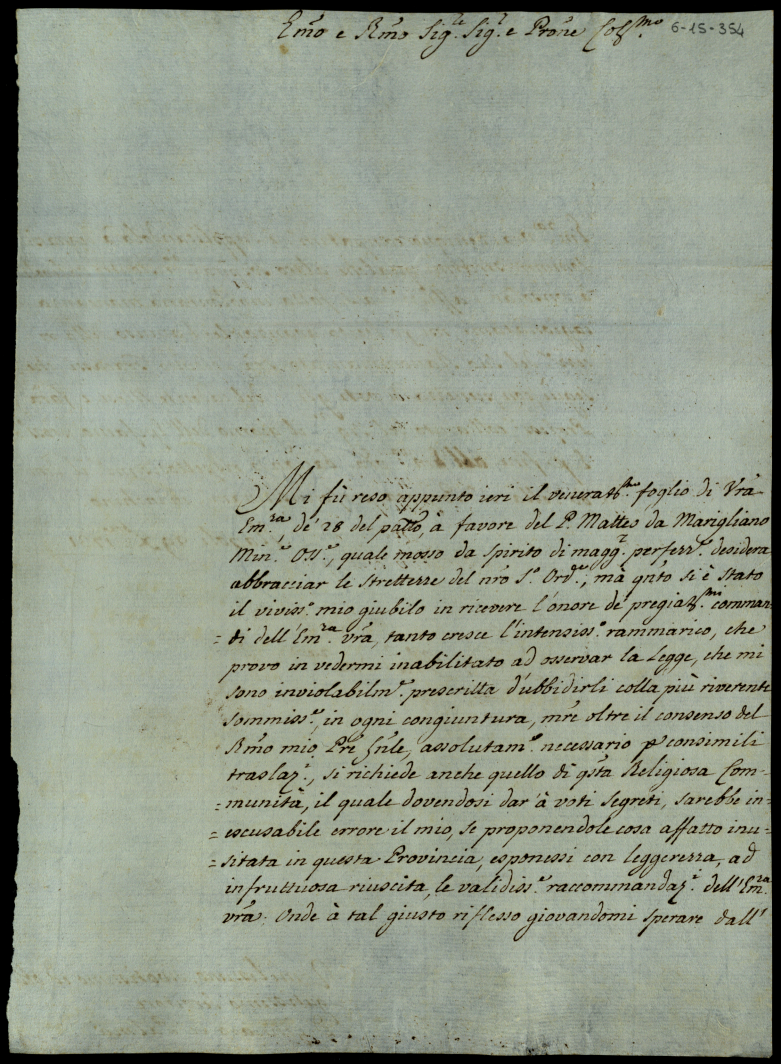 Em̃o e Rm̃o Sig.ʳᵉ Sig.ʳ e Prone Col.ᵐᵒ 6-15-354
Mi fù reso appunto ieri il venerat.ᵐᵒ foglio di Vrã
Em.ᶻᵃ de' 28 del patto, à favore del P. Matteo da Marigliano
Min.ᵉ Oss.ᵉ, quale mosso da spirito di magg.ʳ perfezz.ᵉ desidera
abbracciar le strettezze del nrõ S.ᵒ Ord.ᵉ, mà qñto si è stato
il viviss.ᵒ mio giubilo in ricevere l'onore de' pregiat.ᵐⁱ comman-
=di dell'Em.ᶻᵃ vrã, tanto cresce l'intensiss.ᵒ rammarico, che
provo in vedermi inabilitato ad osservar la Legge, che mi
sono inviolabilm.ᵉ prescritta d'ubbidirli colla più riverente
sommiss.ᵉ in ogni congiuntura, mr̃e oltre il consenso del
Rm̃o mio Prẽ Gñle, assolutam.ᵉ necessario p consimili
traslaz.ⁱ, si richiede anche quello di qsta Religiosa Com-
=munità, il quale dovendosi dar' à voti segreti, sarebbe in=
=escusabile errore il mio, se proponendole cosa affatto inu=
=sitata in questa Provincia, esponessi con leggerezza, ad
infruttuosa riuscita, le validiss.ᵉ raccommandaz.ⁱ dell'Em.ᶻᵃ
vrã. Onde à tal giusto riflesso giovandomi sperare dall'